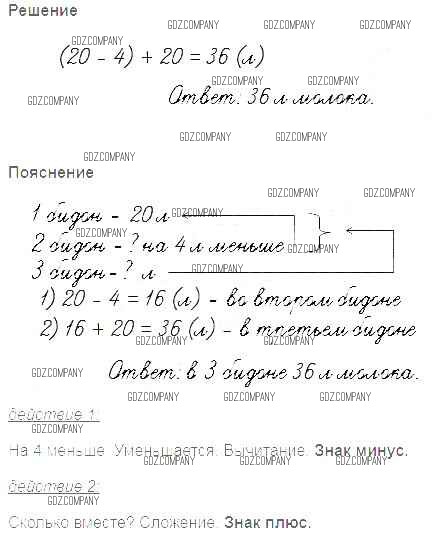 Решение
GDZCOMPANY GDZCOMPANY
GDZCOMPANY
(20 - 4) + 20 = 36 (л)
GDZCOMPANY GDZCOMPANY
Ответ: 36 л молока.
GDZCOMPANY
GDZCOMPANY GDZCOMPANY
GDZCOMPANY
Пояснение
GDZCOMPANY GDZCOMPANY
1 бидон - 20 л
GDZCOMPANY
GDZCOMPANY
2 бидон - ? на 4 л меньше
GDZCOMPANY
3 бидон - ? л
GDZCOMPANY
1) 20 - 4 = 16 (л) - во втором бидоне
GDZCOMPANY GDZCOMPANY
2) 16 + 20 = 36 (л) - в третьем бидоне
GDZCOMPANY GDZCOMPANY
Ответ: в 3 бидоне 36 л молока.
GDZCOMPANY GDZCOMPANY
GDZCOMPANY GDZCOMPANY GDZCOMPANY
действие 1:
GDZCOMPANY
На 4 меньше. Уменьшается. Вычитание. Знак минус.
GDZCOMPANY GDZCOMPANY GDZCOMPANY
действие 2:
GDZCOMPANY
Сколько вместе? Сложение. Знак плюс.
GDZCOMPANY GDZCOMPANY GDZCOMPANY